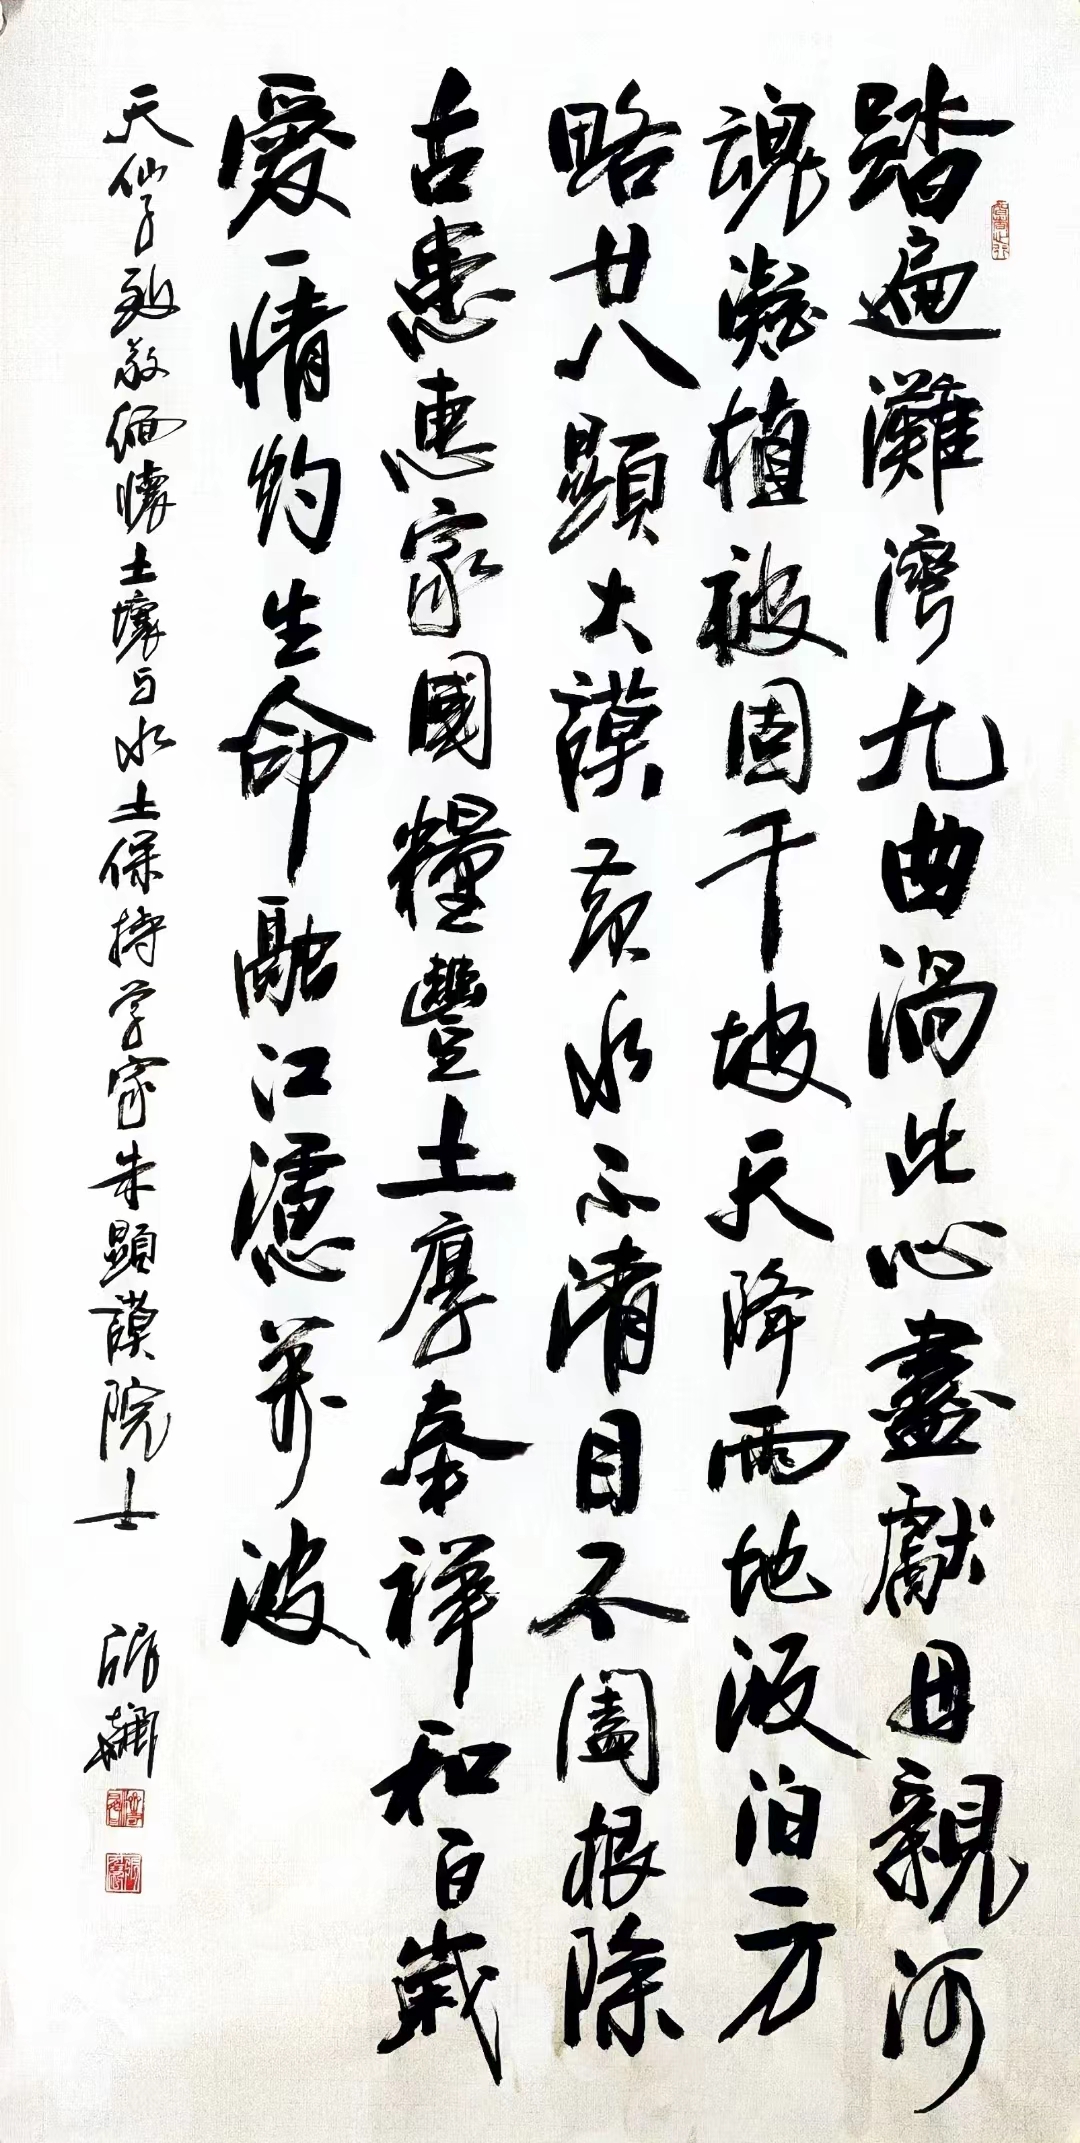 踏遍灘灣九曲渦此心盡獻母親河
魂凝植被固千坡天降雨地液泊方
略廿八顯大謨黃水不清目不闔根除
古患惠家國糧豐土厚奉祥和百歲
愛情灼生命融江漶萬波
天仙子致敬緬懷土壤与水土保持学家朱顯謨院士